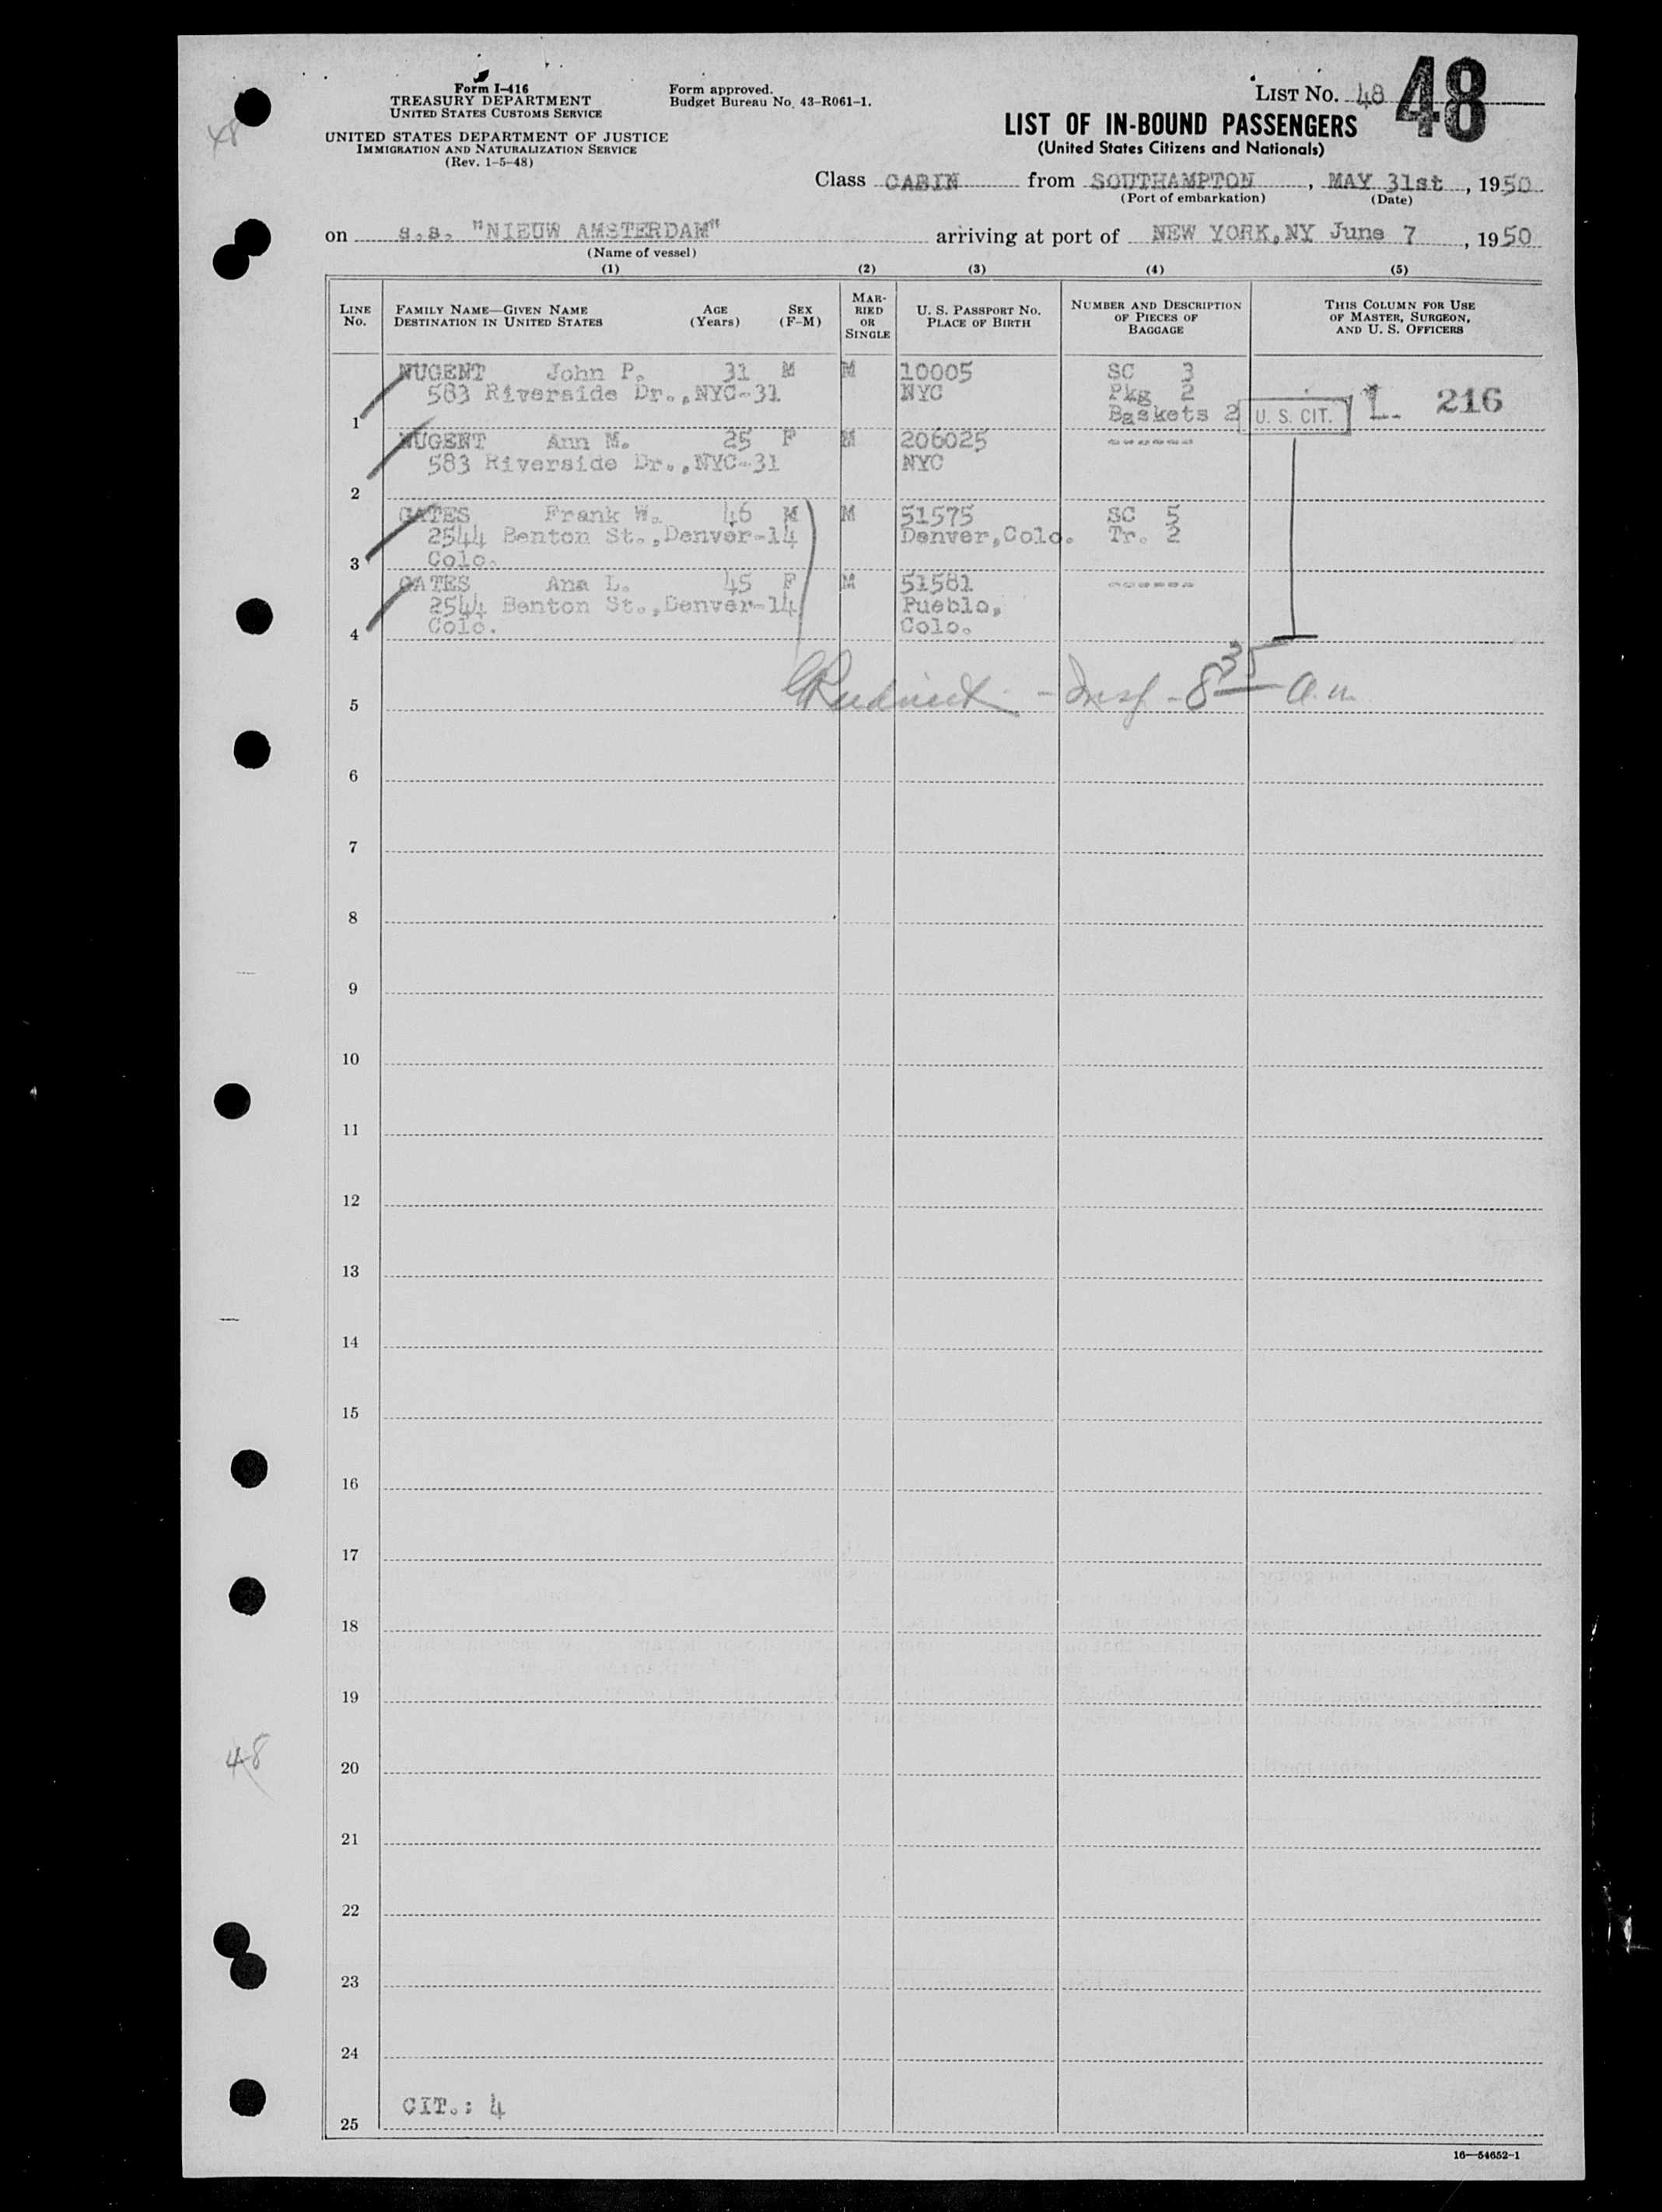 Form I-416
TREASURY DEPARTMENT
UNITED STATES CUSTOMS SERVICE
UNITED STATES DEPARTMENT OF JUSTICE
IMMIGRATION AND NATURALIZATION SERVICE
(Rev. 1-5-48)
Form approved.
Budget Bureau No. 43-R061-1.
LIST NO. 48 48
LIST OF IN-BOUND PASSENGERS
(United States Citizens and Nationals)
48
Class CABIN from SOUTHAMPTON, MAY 31st, 1950
(Port of embarkation) (Date)
on s.s. "NIEUW AMSTERDAM" arriving at port of NEW YORK,NY June 7, 1950
(Name of vessel)
(1) (2) (3) (4) (5)
LINE No. FAMILY NAME—GIVEN NAME DESTINATION IN UNITED STATES AGE (Years) SEX (F-M) MARRIED OR SINGLE U. S. PASSPORT NO. PLACE OF BIRTH NUMBER AND DESCRIPTION OF PIECES OF BAGGAGE THIS COLUMN FOR USE OF MASTER, SURGEON, AND U. S. OFFICERS
NUGENT John P. 31 M M 10005 SC 3
583 Riverside Dr.,NYC-31 NYC Pkg 2
1 Baskets 2 U. S. CIT. 216
NUGENT Ann M. 25 F M 206025 ------
583 Riverside Dr.,NYC-31 NYC
2
GATES Frank W. 46 M M 51575 SC 5
2544 Benton St.,Denver-14 Denver,Colo. Tr. 2
3 Colo.
GATES Ana L. 45 F M 51581 ------
2544 Benton St.,Denver-14 Pueblo,
4 Colo. Colo.
5 - Insp - 8 35 a.m.
6
7
8
9
10
11
12
13
14
15
16
17
18
19
48
20
21
22
23
24
CIT.: 4
25
16—54652-1